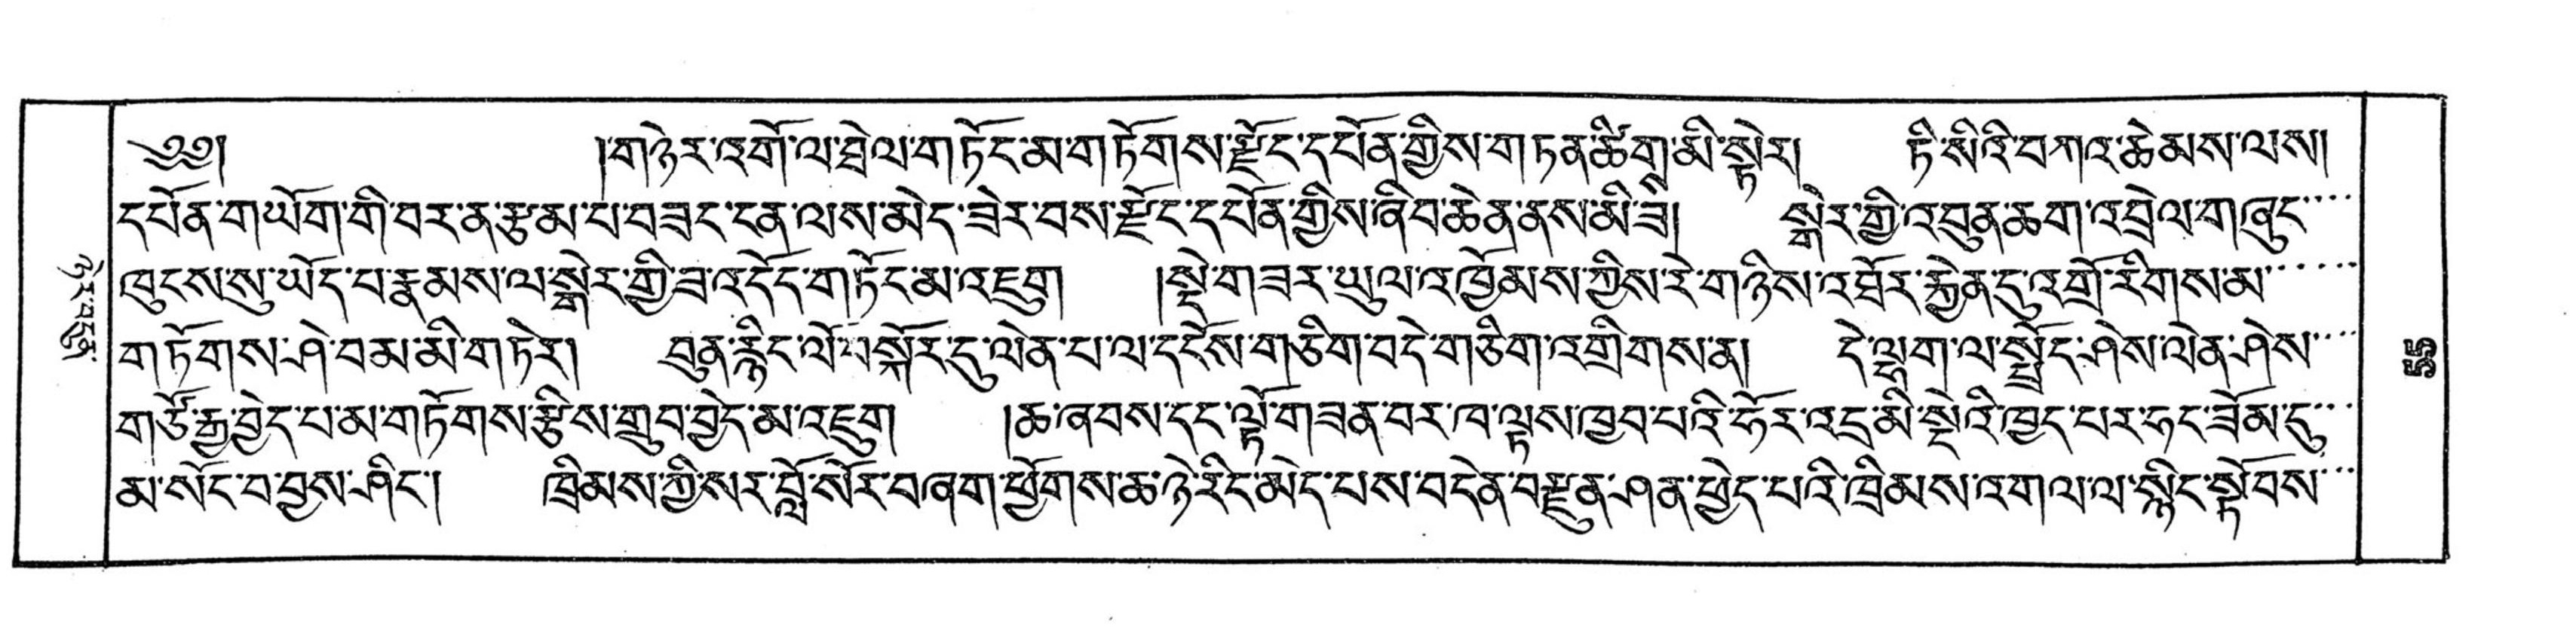 ༄༅། །གཉེར་འགོ་ལ་བྲེལ་གཏོང་མ་གཏོགས་རྫོང་དཔོན་གྱིས་གཏན་ཚིགྲ་མི་སྟེར། ཏི་སིའི་བཀའ་ཆེམས་ལས།
དཔོན་གཡོག་གི་བར་ན་རྩམ་པ་བཟང་ངན་ལས་མེད་ཟེར་བས་རྫོང་དཔོན་གྱིས་ཞིབ་ཆེན་ནས་མི་ཟི། སྒེར་གྱི་འབྲུན་ཆག་འབྲེལ་གཞུང་
ཁུངས་སུ་ཡོད་པ་རྣམས་ལ་སྒེར་གྱི་ཟ་འདོད་གཏོང་མ་འཇུག །སྡེ་གཟར་ཡུལ་འཁྱོམས་ཀྱིས་རེ་གཉིས་འཐོར་རྐྱེན་དུ་འགྲོ་རིགས་མ་
གཏོགས་ཤེ་བམ་མི་གཏེར། བྲུན་རྙིང་ལོ་པ་སྐོར་དུ་ལེན་པ་ལ་དངོས་གཅིག་བདེ་གཅིག་འགྲིགས་ན། དེ་ལྷག་ལ་སྤྲོད་ཤེས་ལེན་ཤེས་
གཙོ་རྒྱ་བྱེད་པ་མ་གཏོགས་རྩིས་གྲུབ་བྱེད་མ་འཇུག །ཆ་ཞབས་དང་ལྟོ་གཟན་བར་ཁ་ལྟས་ཁྱབ་པའི་ཧོར་འདྲ་མི་སྡེའི་ཁྱད་པར་ཧང་ཟོམ་དུ་
མ་སོང་བ་བྱས་ཤིང་། ཁྲིམས་ཀྱི་སར་བློ་སོར་བཞག་ཕྱོགས་ཆ་ཉེ་རིང་མེད་པས་བདེན་བརྫུན་ཤན་ཕྱེད་པའི་ཁྲིམས་འགལ་ལ་སྙིང་སྟོབས་